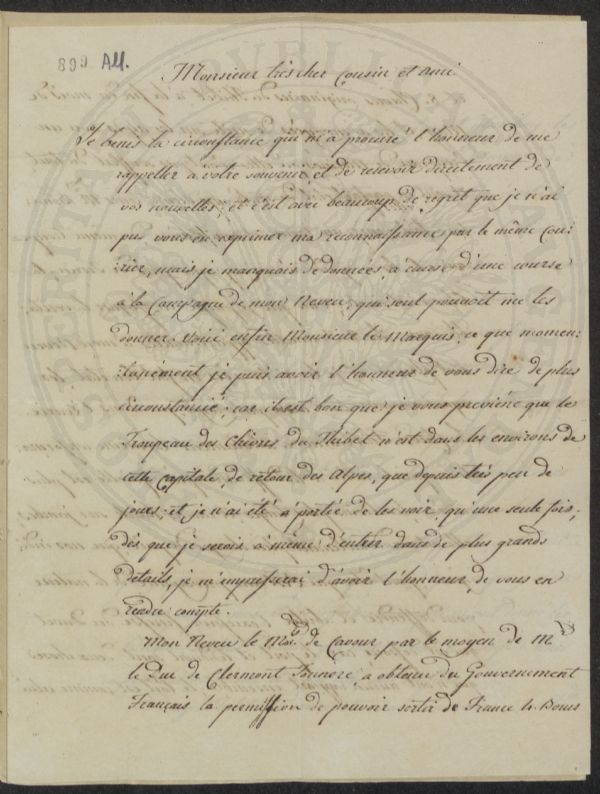 899 All.
Monsieur très cher Cousin et ami
Je benis la circonstance qui m'a procuré l'honneur de me
rappeller à votre souvenir, et de recevoir directement de
vos nouvelles; et c'est avec beaucoup de regret que je n'ai
pu vous en exprimer ma reconnaissance par le même Cou:
rier, mais je manquais de données, à cause d'une course
à la Campagne de mon Neveu, qui seul pouvait me les
donner. Voici enfin Monsieur le Marquis, ce que momen:
tanément je puis avoir l'honneur de vous dire de plus
Circonstancié: car il est bon que je vous previéne que le
Troupeau des Chèvres du Thibet n'est dans les environs de
cette Capitale, de retour des Alpes, que depuis très peu de
jours: et je n'ai été à portée de les voir qu'une seule fois;
dès que je serois à même d'entrer dans de plus grands
détails, je m'empresserai d'avoir l'honneur de vous en
rendre compte.
Mon Neveu le Mis. de Cavour par le moyen de Mr
le Duc de Clermont Tonnere a obtenu du Gouvernement
Français la permission de pouvoir sortir de France 4. Boucs